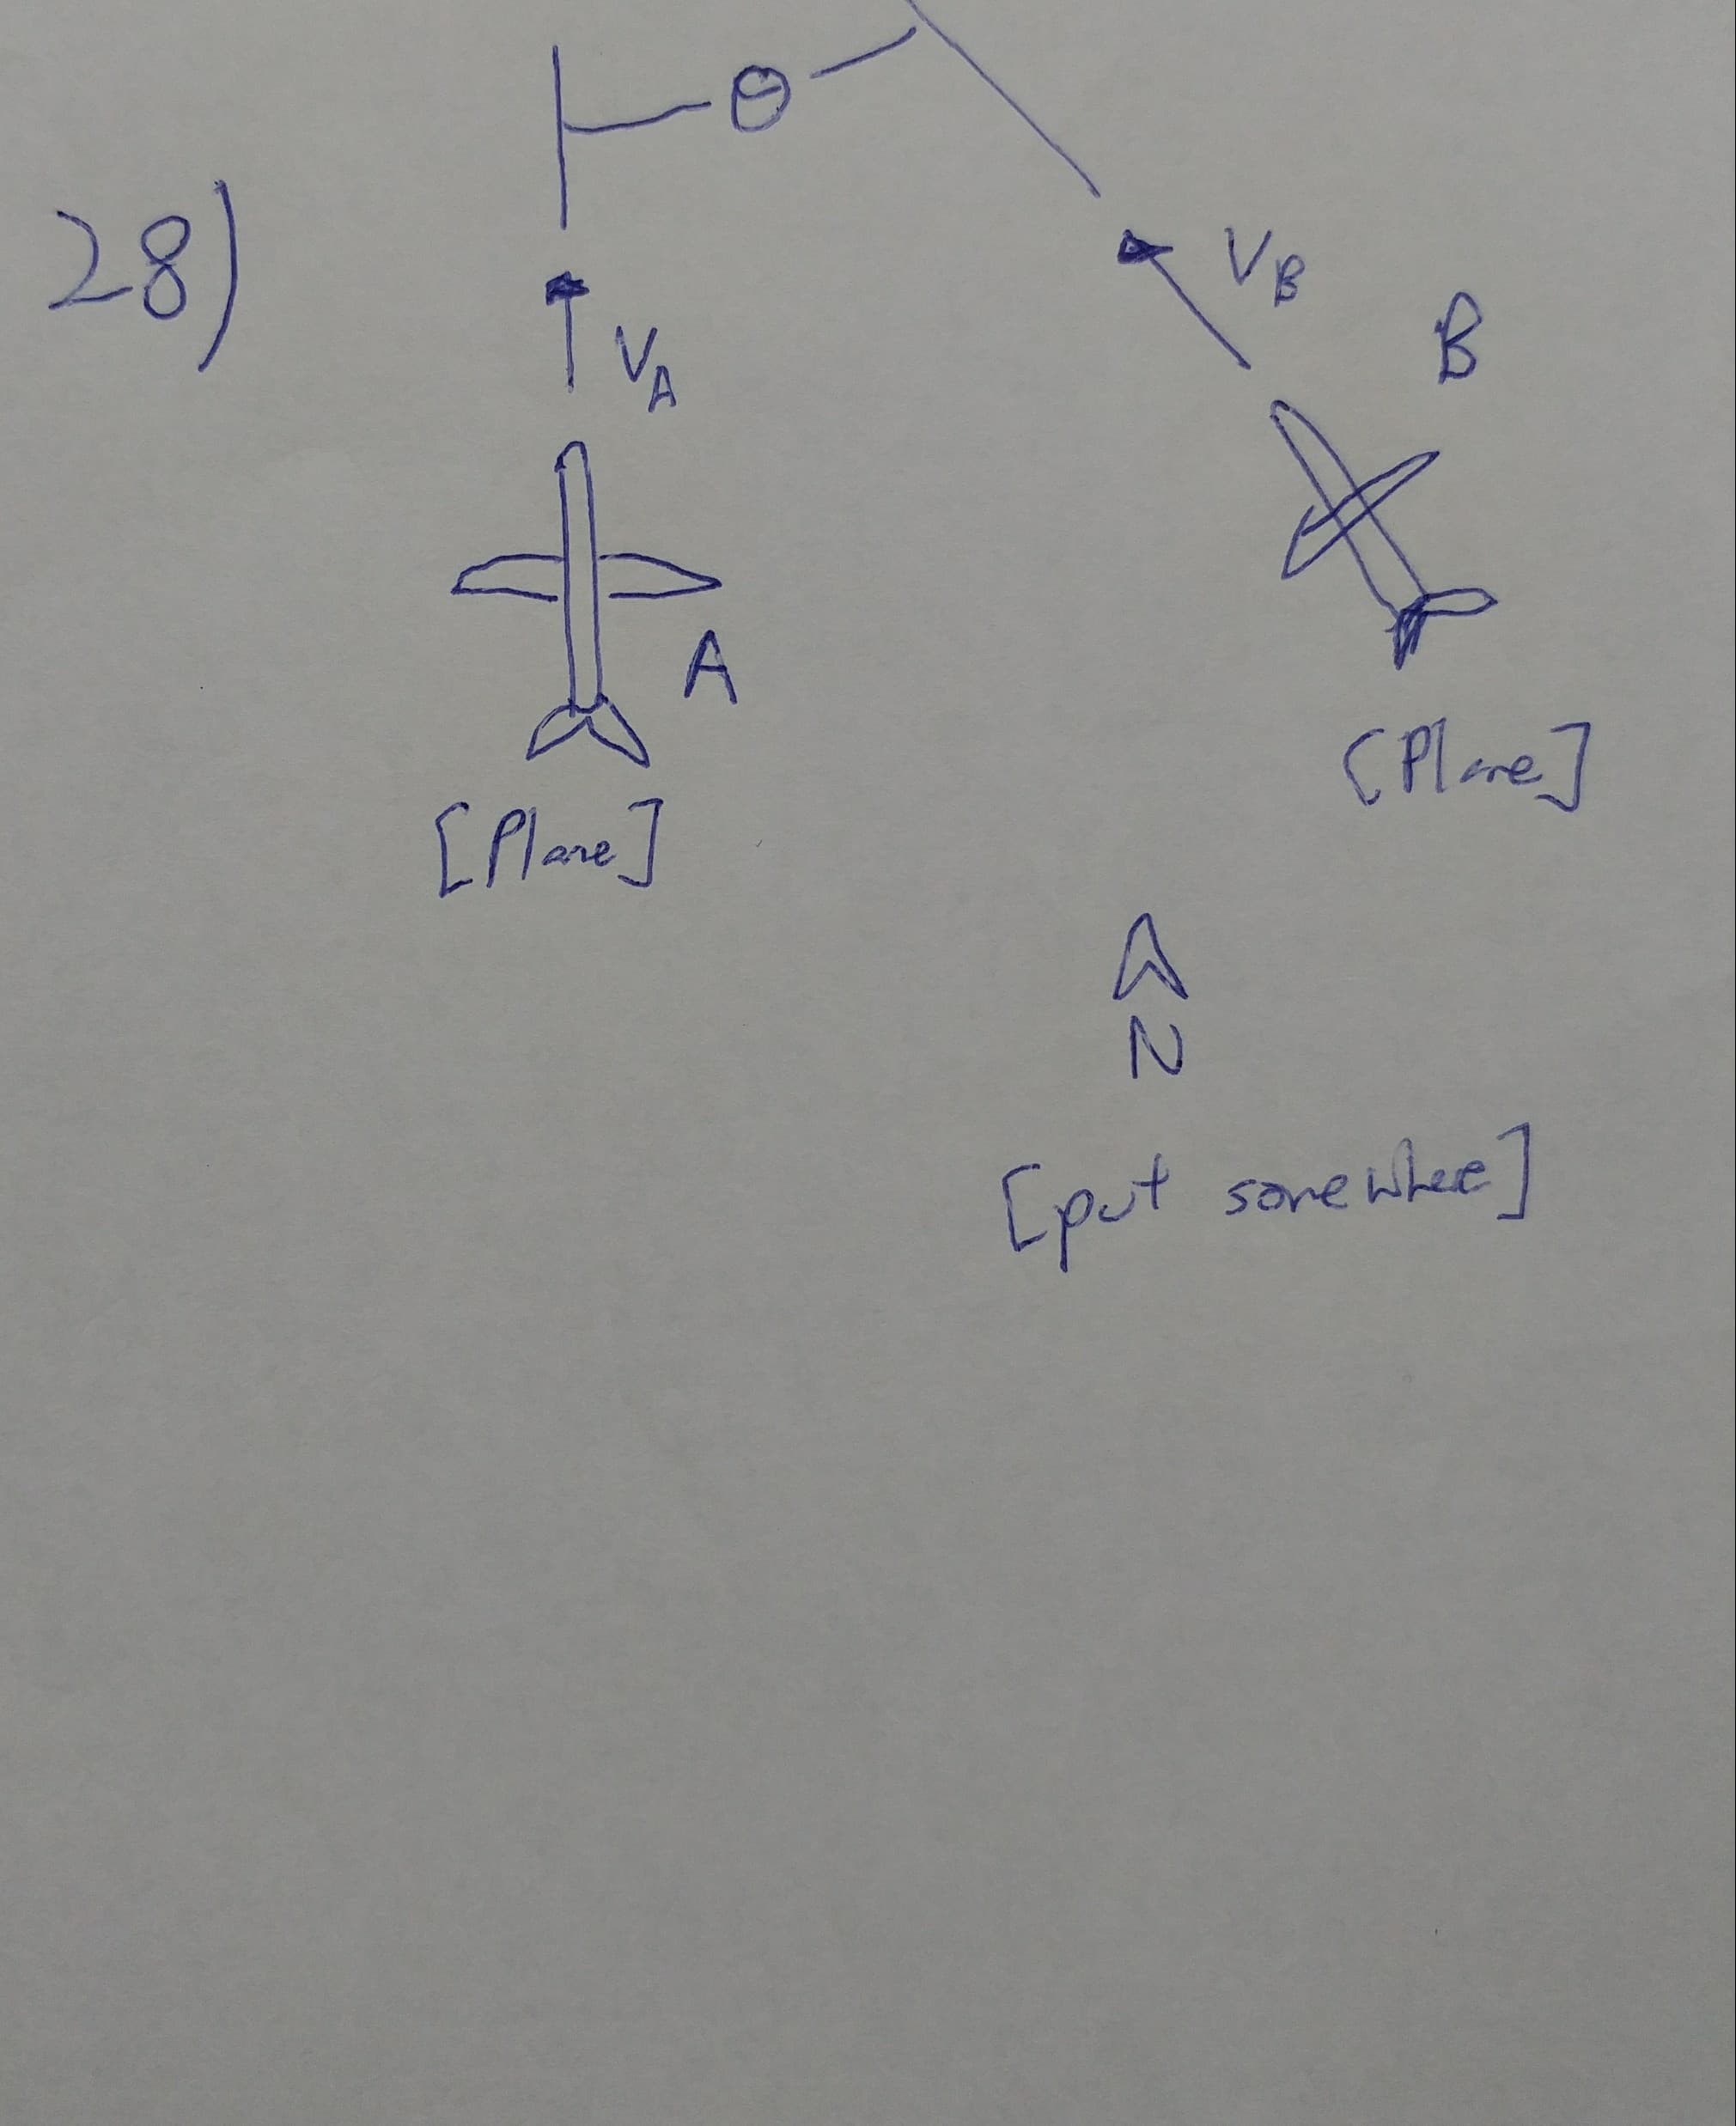 θ
28)
V_B
V_A
B
A
[Plane]
[Plane]
N
[put somewhere]